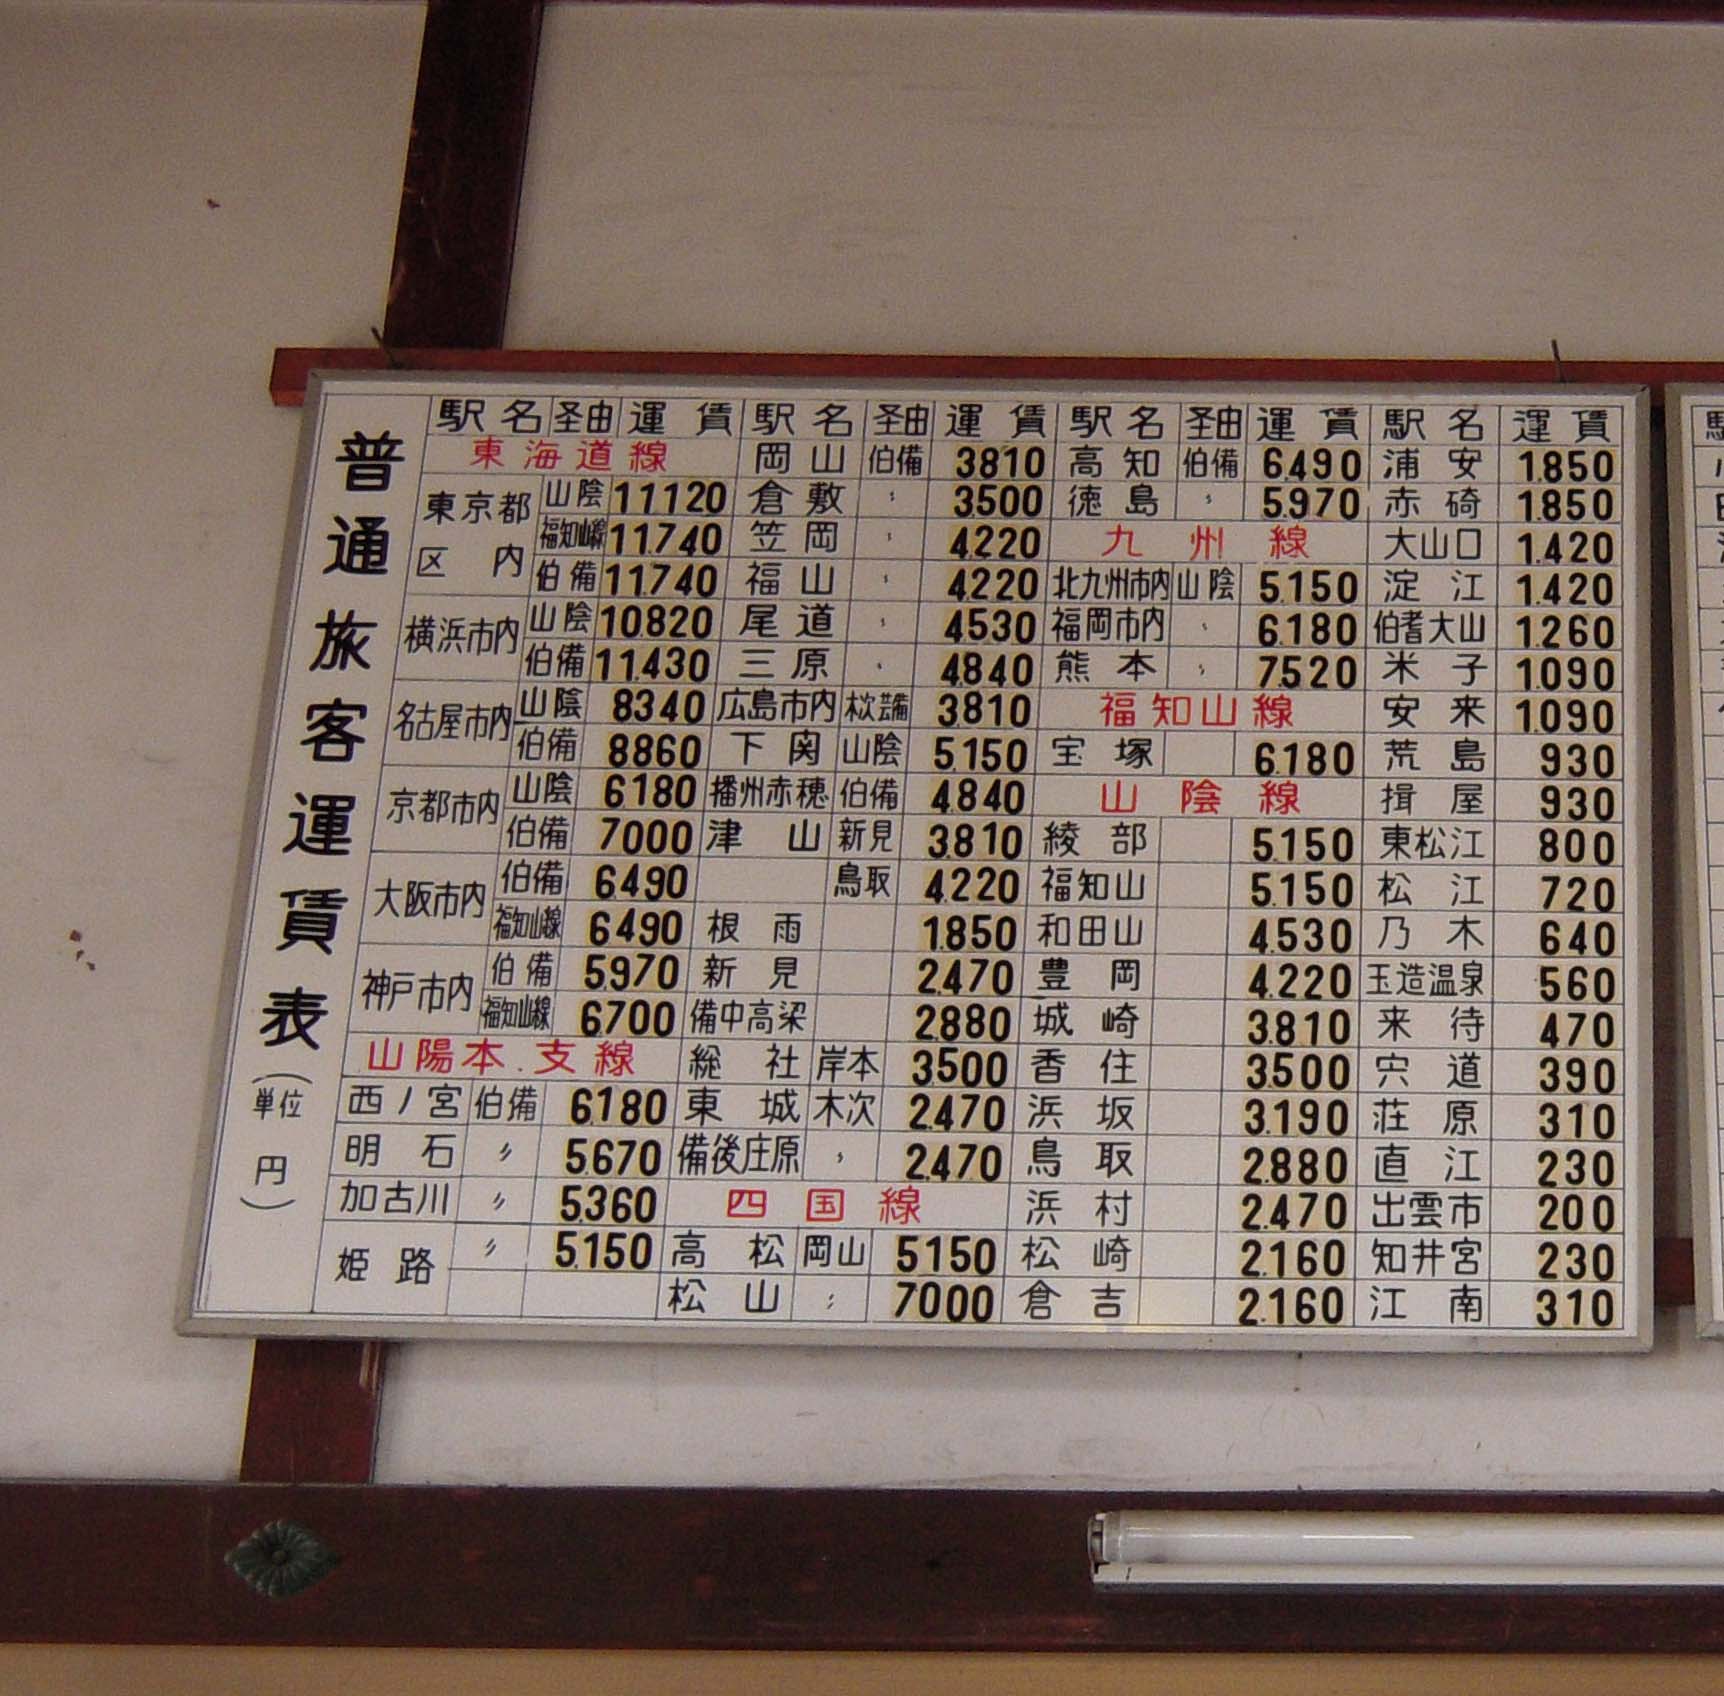 普通旅客運賃表(単位 円)
駅名 圣由 運賃 駅名 圣由 運賃 駅名 圣由 運賃 駅名 運賃
東海道線 岡山 伯備 3810 高知 伯備 6.490 浦安 1.850
東京都区内 山陰 11.120 倉敷 〃 3.500 徳島 〃 5.970 赤碕 1.850
福知山線 11.740 笠岡 〃 4.220 九州線 大山口 1.420
伯備 11.740 福山 〃 4.220 北九州市内 山陰 5.150 淀江 1.420
横浜市内 山陰 10.820 尾道 〃 4530 福岡市内 〃 6.180 伯耆大山 1.260
伯備 11.430 三原 〃 4.840 熊本 〃 7.520 米子 1.090
名古屋市内 山陰 8340 広島市内 木次芸備 3.810 福知山線 安来 1.090
伯備 8860 下関 山陰 5.150 宝塚 6.180 荒島 930
京都市内 山陰 6.180 播州赤穂 伯備 4.840 山陰線 揖屋 930
伯備 7.000 津山 新見 3.810 綾部 5.150 東松江 800
大阪市内 伯備 6.490 鳥取 4.220 福知山 5.150 松江 720
福知山線 6.490 根雨 1.850 和田山 4.530 乃木 640
神戸市内 伯備 5.970 新見 2.470 豊岡 4.220 玉造温泉 560
福知山線 6.700 備中高梁 2.880 城崎 3.810 来待 470
山陽本.支線 総社 岸本 3.500 香住 3.500 宍道 390
西ノ宮 伯備 6.180 東城 木次 2.470 浜坂 3.190 荘原 310
明石 〃 5.670 備後庄原 〃 2.470 鳥取 2.880 直江 230
加古川 〃 5.360 四国線 浜村 2.470 出雲市 200
姫路 〃 5.150 高松 岡山 5150 松崎 2.160 知井宮 230
松山 〃 7000 倉吉 2.160 江南 310